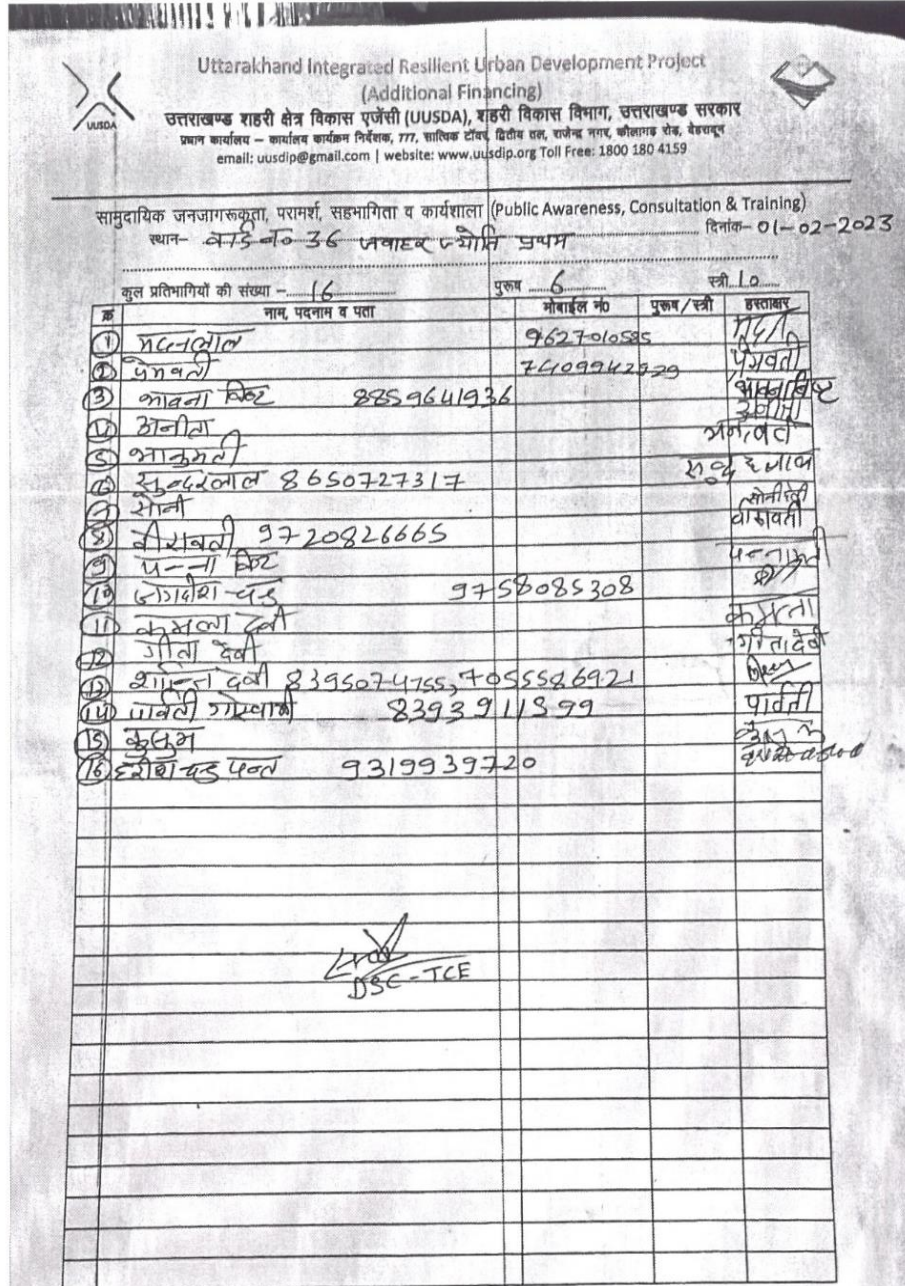 UUSDA
Uttarakhand Integrated Resilient Urban Development Project
(Additional Financing)
उत्तराखण्ड शहरी क्षेत्र विकास एजेंसी (UUSDA), शहरी विकास विभाग, उत्तराखण्ड सरकार
प्रधान कार्यालय – कार्यालय कार्यक्रम निर्देशक, 777, सात्विक टॉवर, द्वितीय तल, राजेन्द्र नगर, कौलागढ रोड, देहरादून
email: uusdip@gmail.com | website: www.uusdip.org Toll Free: 1800 180 4159
सामुदायिक जनजागरूकता, परामर्श, सहभागिता व कार्यशाला (Public Awareness, Consultation & Training)
स्थान- वार्ड नं० 36 जवाहर ज्योति प्रथम दिनांक- 01-02-2023
कुल प्रतिभागियों की संख्या - 16 पुरूष 6 स्त्री 10
क्र नाम, पदनाम व पता मोबाईल नं0 पुरूष/स्त्री हस्ताक्षर
1 मदनलाल 9627010585
2 प्रेमवती 7409942929 प्रेमवती
3 भावना बिष्ट 8859641936 भावना बिष्ट
4 अनीता अनीता
5 भानुमती
6 सुन्दरलाल 8650727317
7 सोनी सोनी देवी
8 वीरावती 9720826665 वीरावती
9 पन्ना बिष्ट पन्ना
10 जगदीश चन्द्र 9758085308
11 कमला देवी कमला
12 गीता देवी गीता देवी
13 शान्ति देवी 8395074755, 7055586921
14 पार्वती गोस्वामी 8393911399 पार्वती
15 कुसुम कुसुम
16 हरीश चन्द्र पन्त 9319939720
DSC-TCE